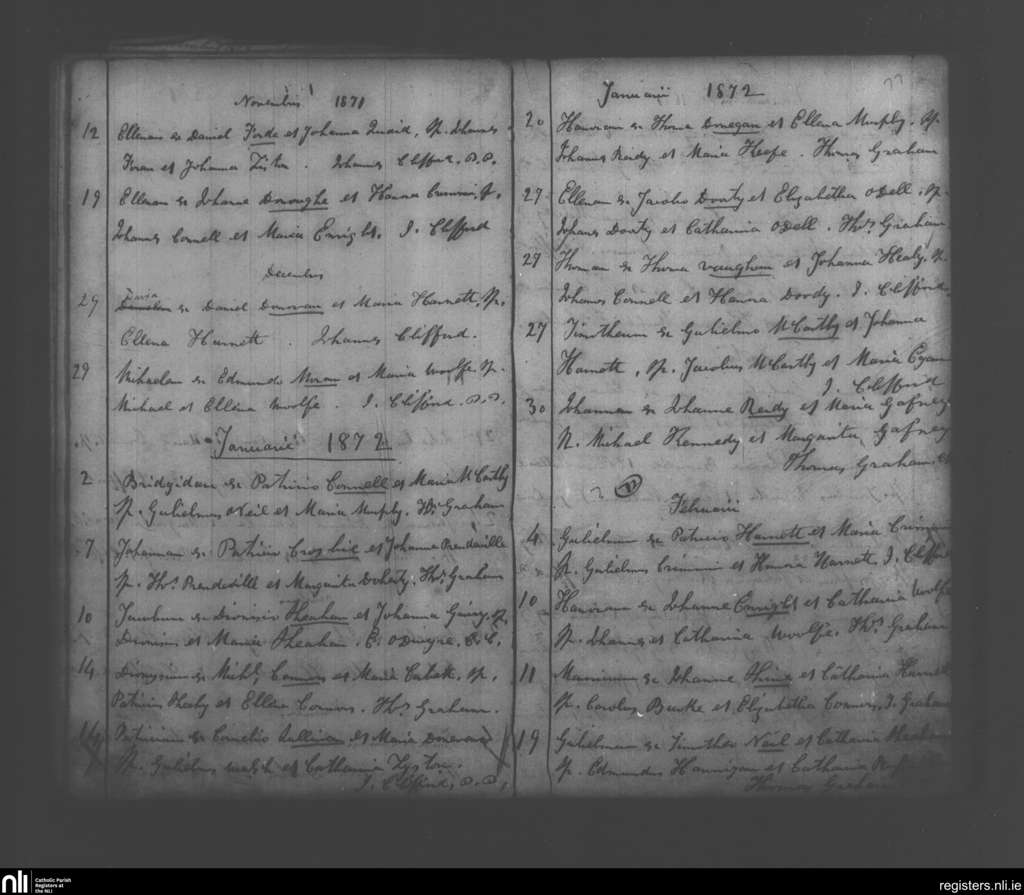 Novembris 1871
12 Ellenam ex Daniel Forde et Johanna Quaid, Sp. Johannes
Kiran et Johanna Liston. Johannes Clifford. P.P.
19 Ellenam ex Johanne Donoughe et Hanna Crimmin, Sp.
Johannes Connell et Maria Enright. J. Clifford
Decembris
29 Daniel Donovan et Maria Harnett, Sp.
Ellena Harnett. Johannes Clifford.
29 Michaelem ex Edmundo Moran et Maria Woolfe, Sp.
Michael et Ellena Woolfe. J. Clifford. P.P.
Januarii 1872
2 Bridgidam ex Patricio Connell et Maria McCarthy
Sp. Gulielmus ONeil et Maria Murphy. Ths Graham
7 Johannam ex Patricio Crosbie et Johanna Prendeville
Sp. Thos. Prendeville et Margarita Doherty. Thos. Graham
10 Jacobum ex Dionisio Sheahan et Johanna Sp.
Dionisius et Maria Sheahan. E. ODwyre. C.C.
14 Dionysium ex Michl. Connors et Maria Sp.
Patricius Sheehy et Ellena Connors. Thos. Graham.
14 Patricium ex Cornelio Sullivan et Maria Donovan
Sp. Gulielmus Walsh et Catharina Lyston.
J. Clifford, P.P.
Januarii 1872 77
20 Honoram ex Thoma Donegan et Ellena Murphy. Sp
Johannes Reidy et Maria Keefe. Thomas Graham
27 Ellenam ex Jacobo Dooty et Elizabetha ODell, Sp.
Johanes Dooty et Catharina ODell. Thos. Graham
27 Thomam ex Thoma Vaughan et Johanna Healy, Sp.
Johanes Connell et Hanora Doody. J. Clifford.
27 Timotheum ex Gulielmo McCarthy et Johanna
Harnett, Sp. Jacobus McCarthy et Maria
J. Clifford
30 Johannam ex Johanne Reidy et Maria Gafney
Michael Kennedy et Margarita Gafney
Thomas Graham
Februarii
4. Gulielmum ex Patricio Harnett et Maria
Sp. Gulielmus Crimmin et Honora Harnett. J. Clifford
10 Honoram ex Johanne Enright et Catharina Woolfe
Sp. Johannes et Catharina Woolfe. Thos. Graham
11 ex Johanne Shine et Catharina
Sp. Carolus Burke et Elizabetha Connors. J. Graham
19 Gulielmum ex Timotheo Neil et Catharina
Sp. Edmundus Hannigan et Catharina
Thomas Graham
nli
Catholic Parish
Registers at
the NLI
registers.nli.ie